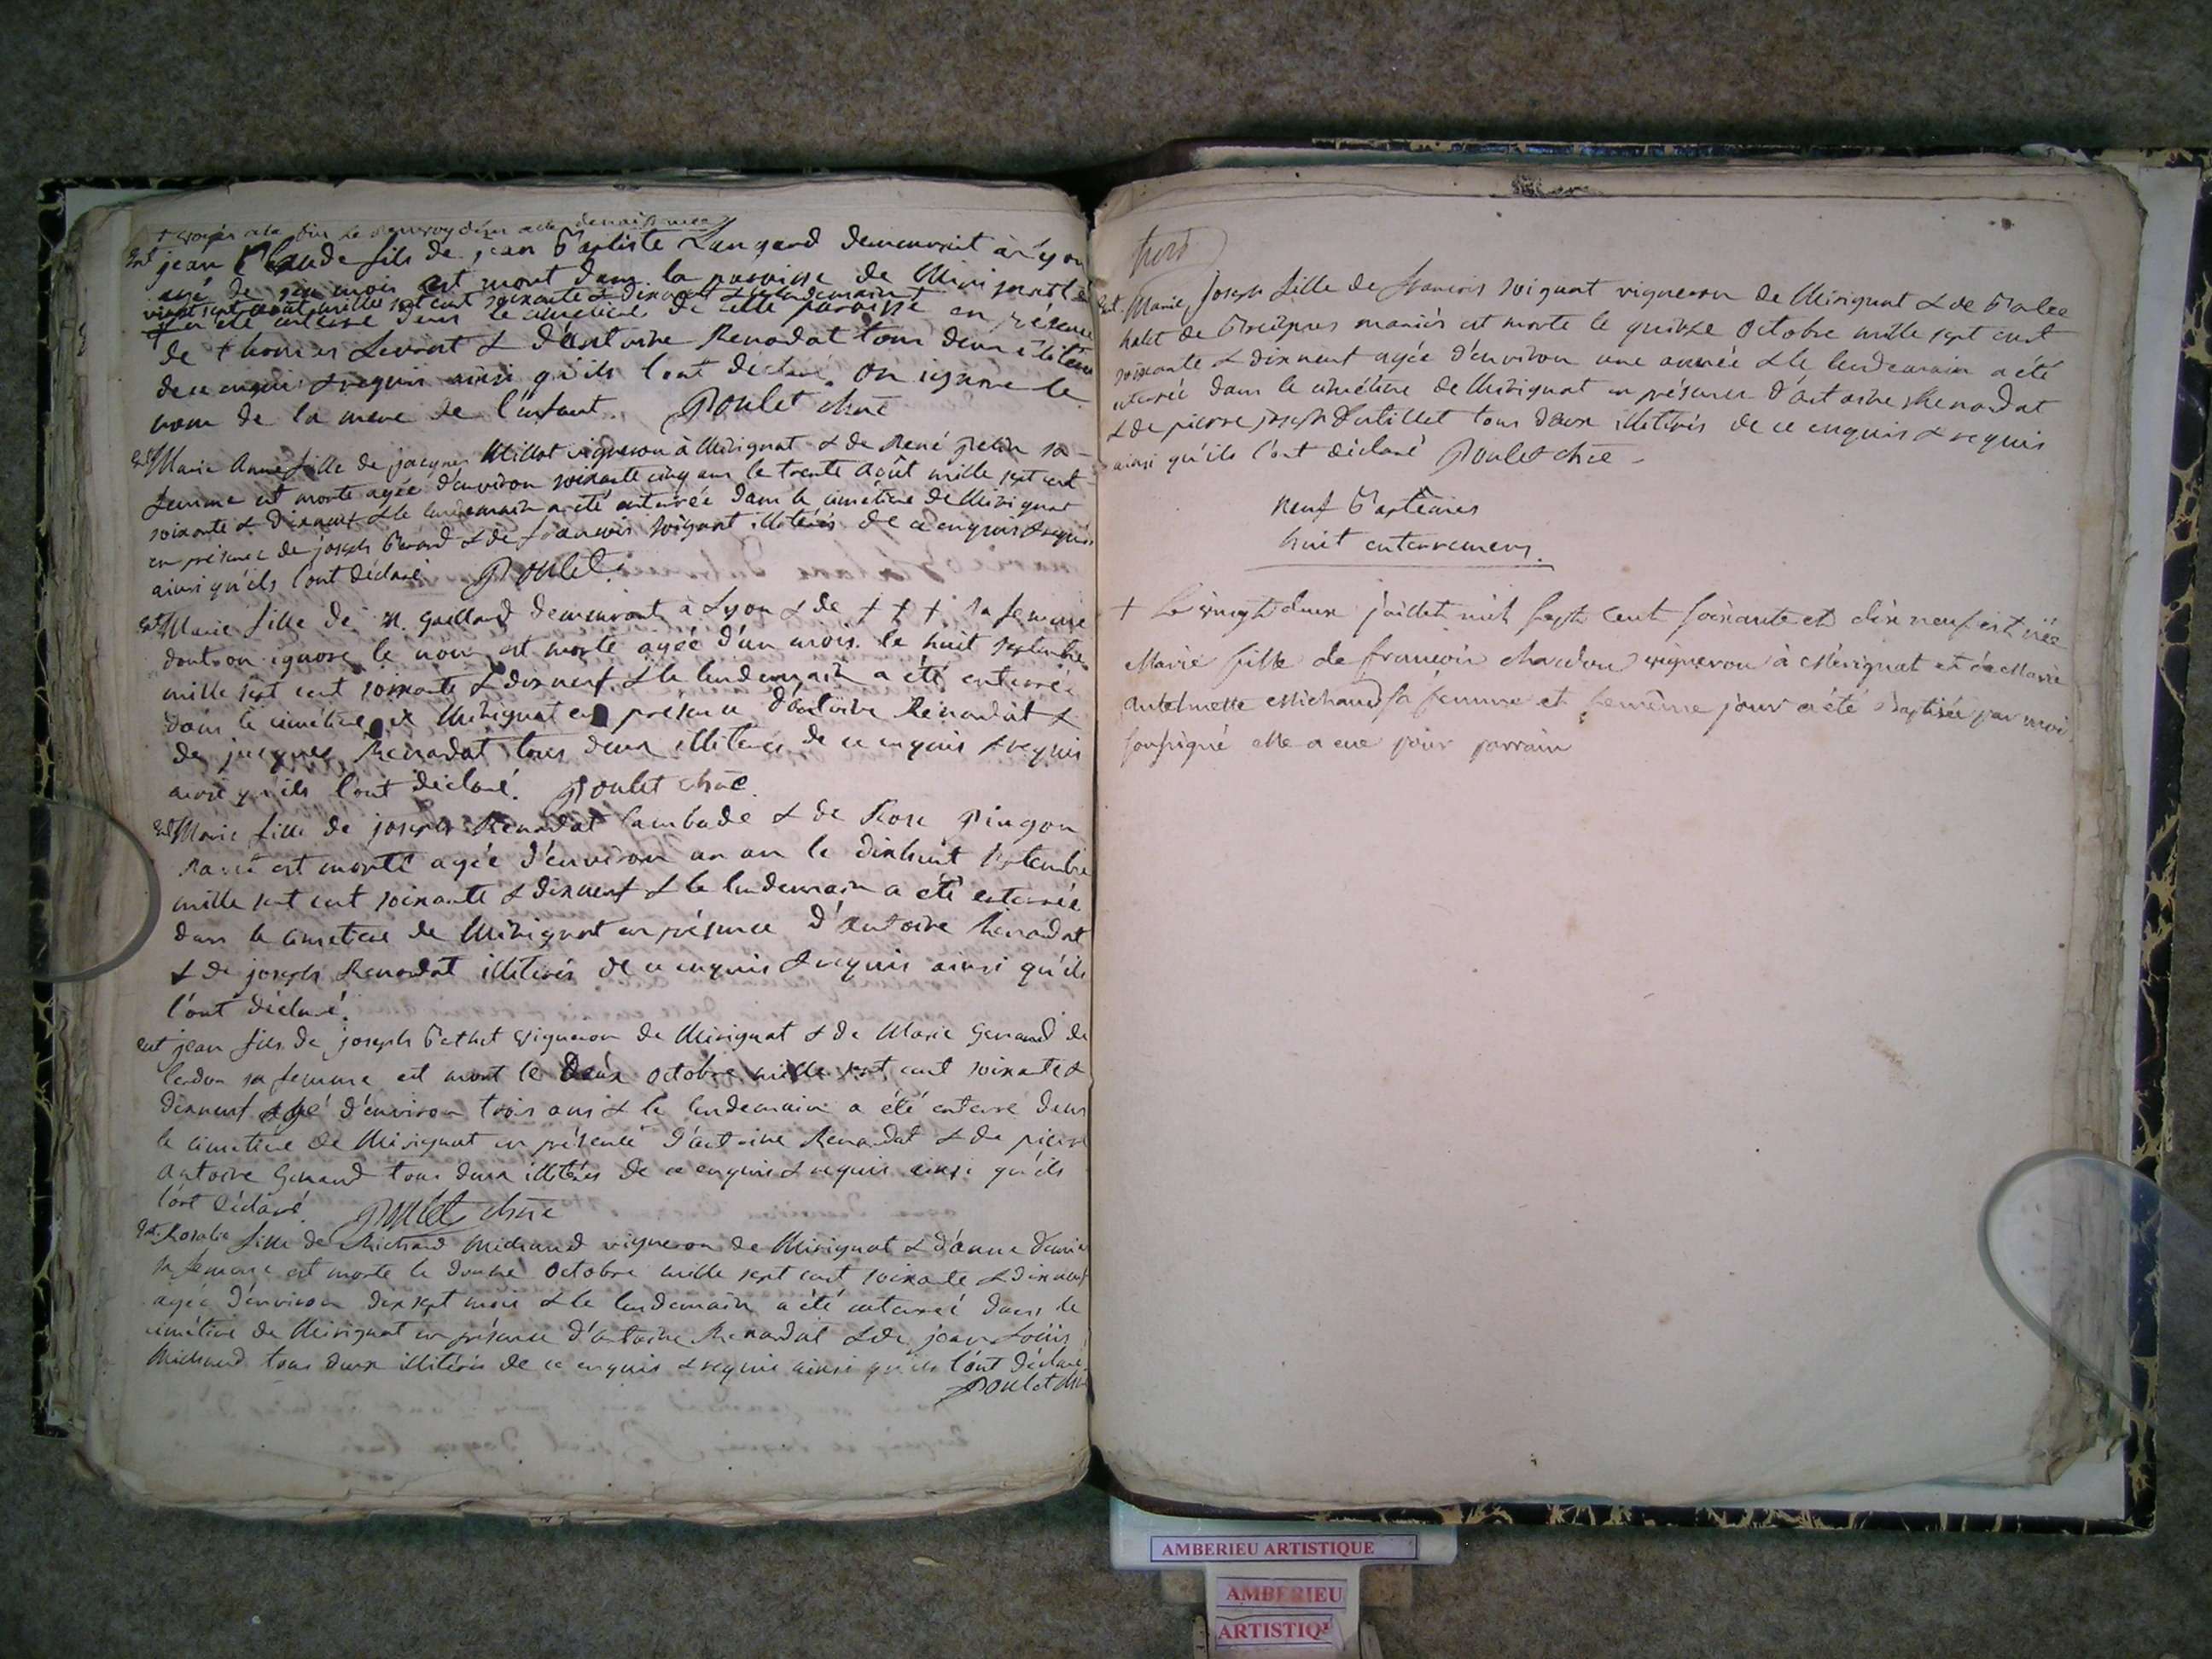 + voyés a la fin le renvoy d'un acte de naissance
Ent jean Claude fils de jean Baptiste Langard demeurant à Lyon
agé de mois est mort dans la paroisse de Merignat le
vingt sept août mille sept cent soixante & dixneuf & le lendemain
a été enterré dans le cimetiere de cette paroisse en présence
de thomas & d'antoine Renardat tous deux illiterés
de ce enquis & requis ainsi qu'ils l'ont déclaré. On ignore le
nom de la mere de l'enfant. Poulet
Ent Marie Anne fille de jacques Millot vigneron à Mérignat & de René sa
femme est morte agée d'environ soixante cinq ans le trente Août mille sept cent
soixante & dixneuf & le lendemain a été enterrée dans le cimetière de Mérignat
en présence de joseph & de françois Soignat illitérés de ce enquis & requis
ainsi qu'ils l'ont déclaré Poulet
Ent Marie fille de n. Gaillard demeurant à Lyon & de + + + sa femme
dont on ignore le nom est morte agée d'un mois le huit septembre
mille sept cent soixante & dixneuf & le lendemain a été enterrée
dans le cimetiere de Mérignat en présence d'antoine Renardat &
de jacques Renardat tous deux illiterés de ce enquis & requis
ainsi qu'ils l'ont déclaré. Poulet
Ent Marie fille de joseph Renardat Lambade & de Rose Pingon
mariés est morte agée d'environ un an le dixhuit septembre
mille sept cent soixante & dixneuf & le lendemain a été enterrée
dans le cimetiere de Mérignat en présence d'Antoine Renardat
& de joseph Renardat illiterés de ce enquis & requis ainsi qu'ils
l'ont déclaré.
ent jean fils de joseph Bethet vigneron de Mérignat & de Marie Genand de
Cerdon sa femme est mort le Deux octobre mille sept cent soixante &
dixneuf agé d'environ trois ans & le lendemain a été enterré dans
le cimetiere de Mérignat en présence d'antoine Renardat & de pierre
Antoine Genand tous deux illitérés de ce enquis & requis ainsi qu'ils
l'ont déclaré Poulet
Ent. Rosalie fille de Michaud vigneron de Mérignat & d'anne
sa femme est morte le douze octobre mille sept cent soixante & dixneuf
agée d'environ dix sept mois & le lendemain a été enterrée dans le
cimétiere de Mérignat en présence d'antoine Renardat & de jean Loüis
Michaud tous deux illitérés de ce enquis & requis ainsi qu'ils l'ont déclaré
Poulet
Ent. Marie joseph fille de francois Soignat vigneron de Mérignat & de
mariés est morte le quinze Octobre mille sept cent
soixante & dixneuf agée d'environ une année & le lendemain a été
enterrée dans le cimétiere de Mérignat en présence d'antoine Renardat
& de pierre joseph tous deux illitérés de ce enquis & requis
ainsi qu'ils l'ont déclaré Poulet
neuf Baptêmes
huit enterremens.
+ Le vingt deux juillet mil sept cent soixante et dix neuf est née
Marie fille de françois vigneron à Mérignat et de Marie
Antelmette Michaud sa femme et le même jour a été Baptisée par moi
soussigné elle a eue pour parrain
AMBERIEU ARTISTIQUE
AMBERIEU
ARTISTIQ